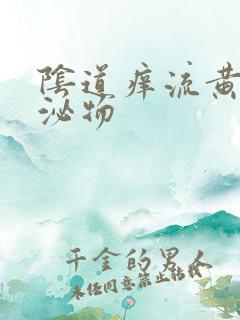 陰道痒流黄
泌物
千金的男人
未经同意禁止转载